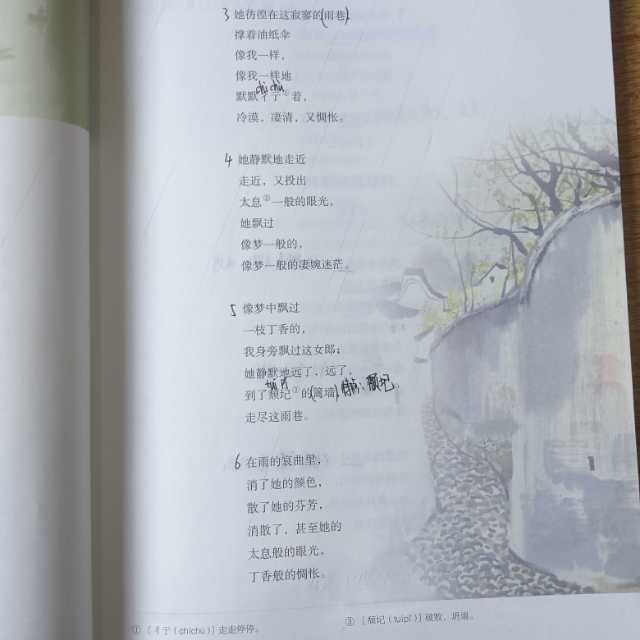 3 她彷徨在这寂寥的(雨巷)
撑着油纸伞
像我一样,
像我一样地
chì chù
默默彳亍①着,
冷漠,凄清,又惆怅。
4 她静默地走近
走近,又投出
太息②一般的眼光,
她飘过
像梦一般的,
像梦一般的凄婉迷茫。
5 像梦中飘过
一枝丁香的,
我身旁飘过这女郎;
她静默地远了,远了,
到了颓圮③的(篱墙)
走尽这雨巷。
6 在雨的哀曲里,
消了她的颜色,
散了她的芬芳,
消散了,甚至她的
太息般的眼光,
丁香般的惆怅。
①〔彳亍(chìchù)〕走走停停。
③〔颓圮(tuípǐ)〕破败、坍塌。